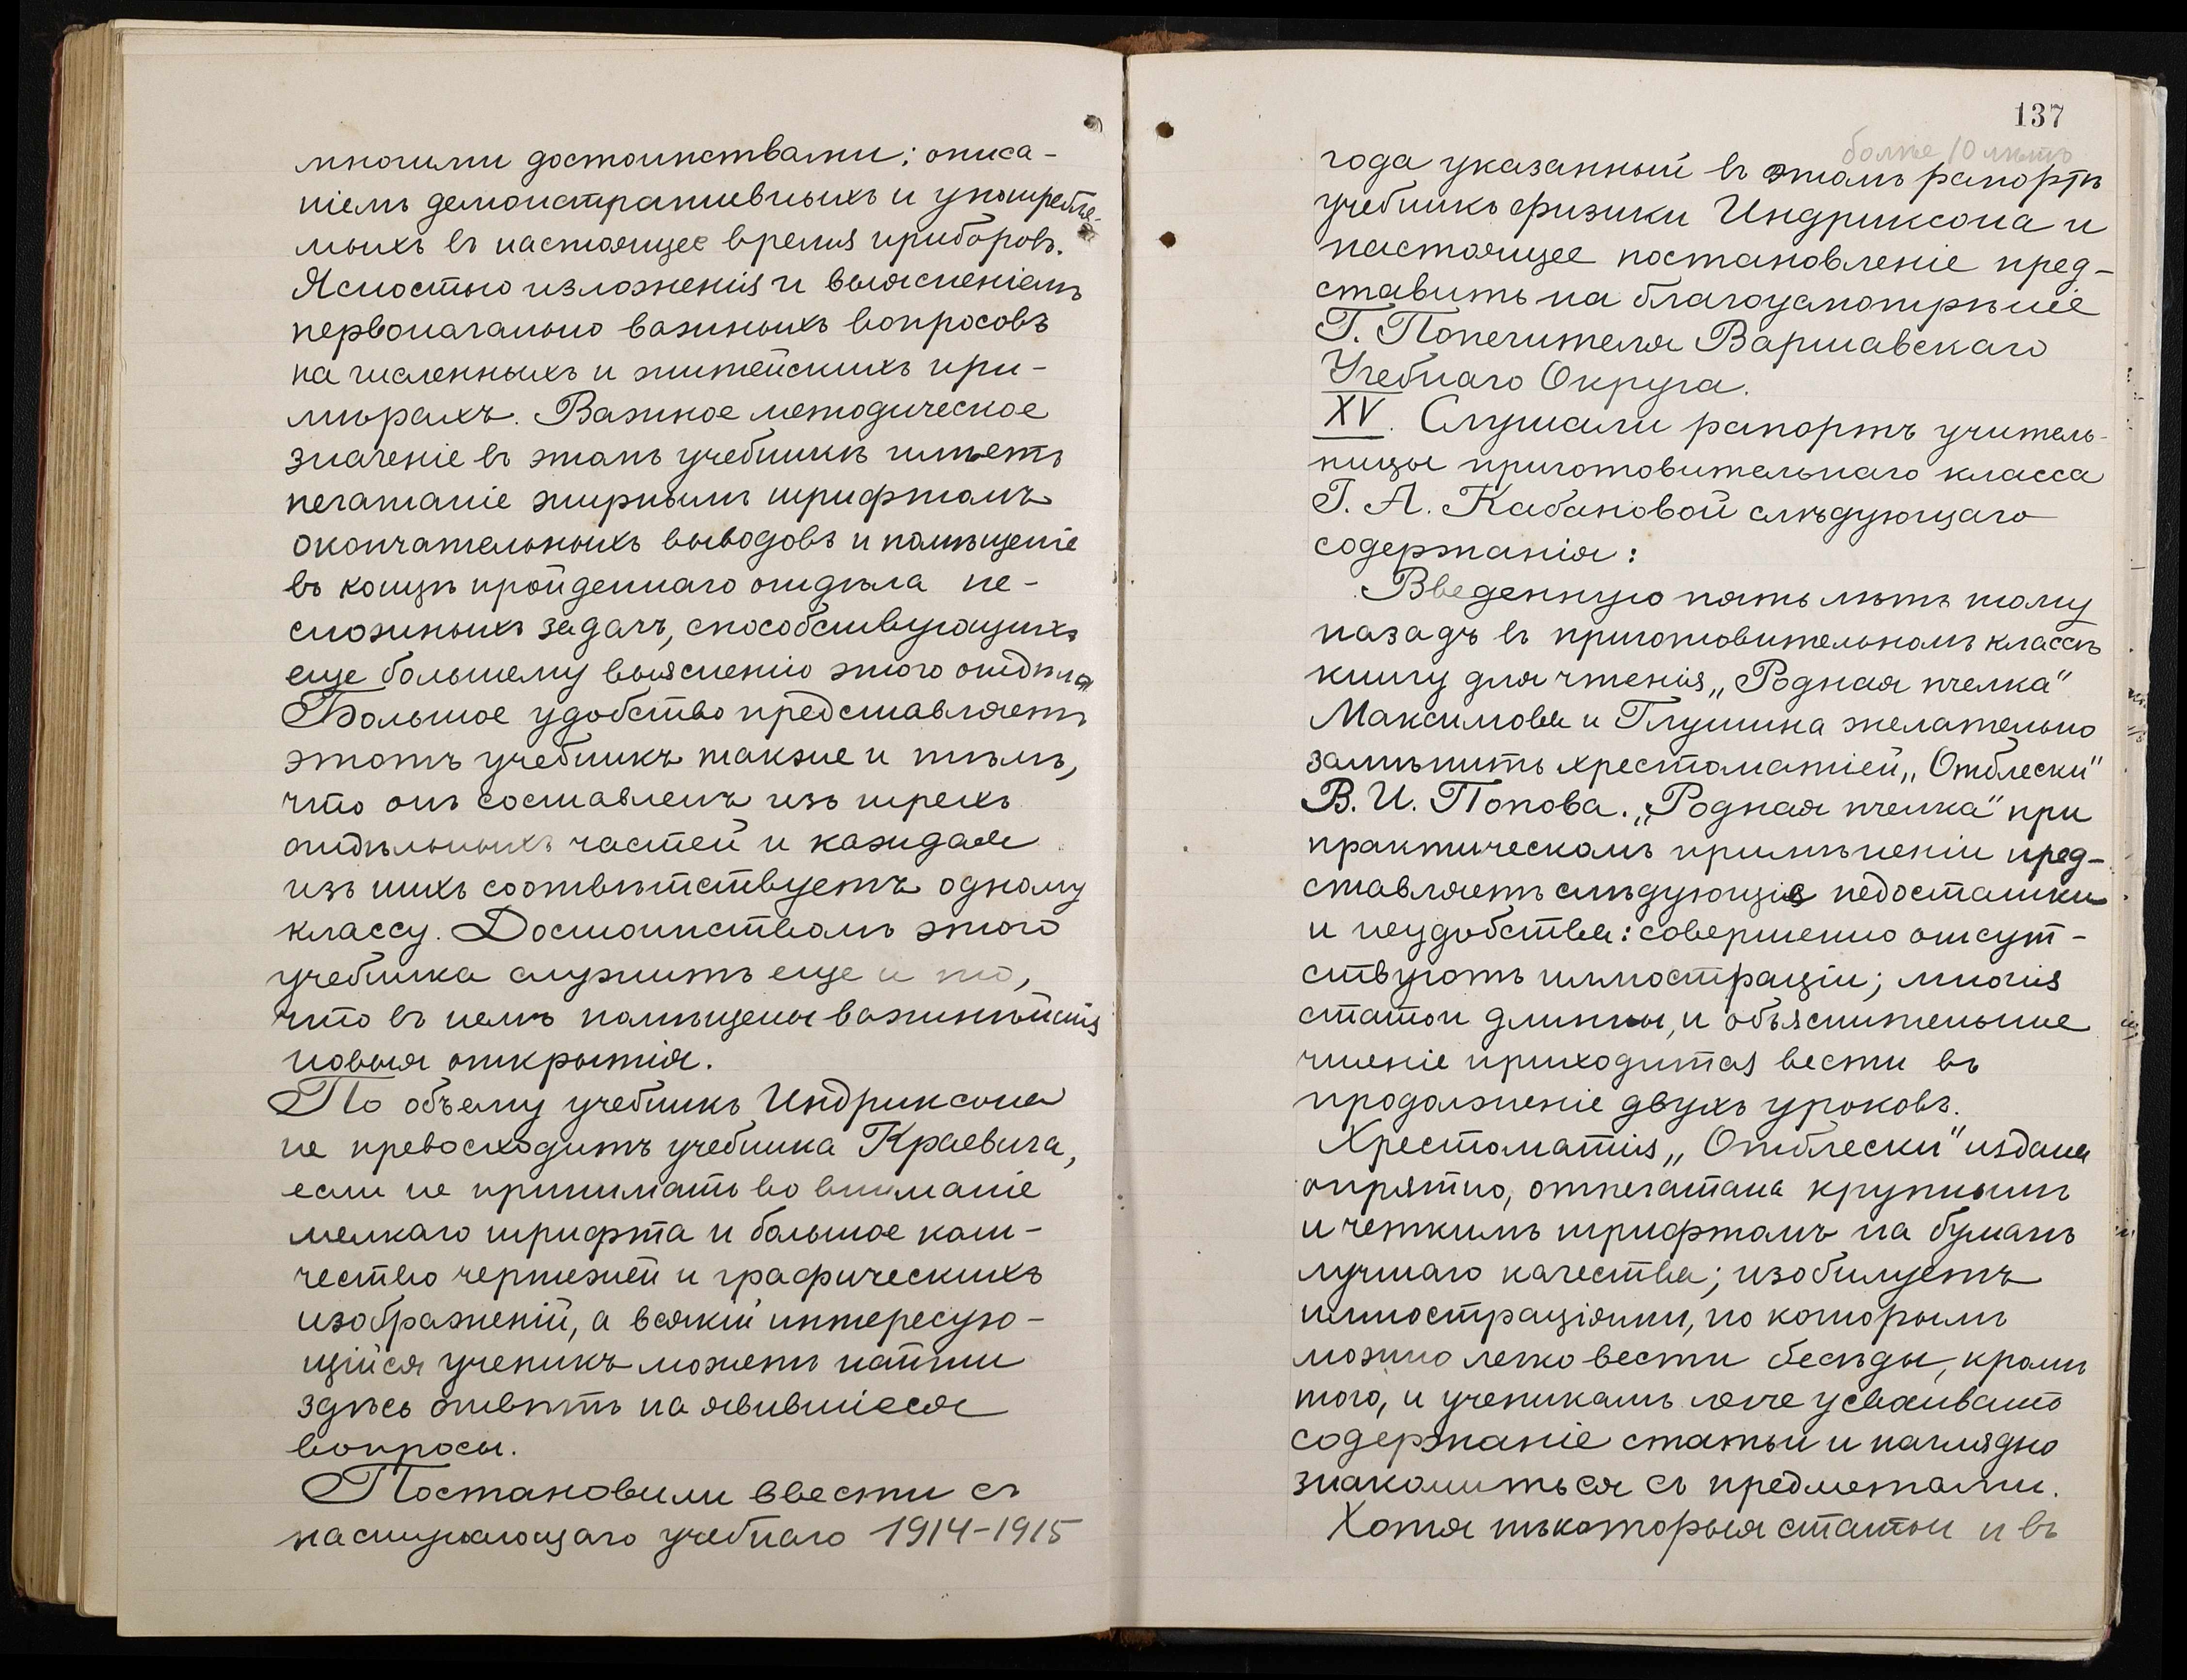 многими достоинствами: описа-
ніемъ демонстративныхъ и употребляе-
мыхъ въ настоящее время приборовъ.
Ясностью изложенія и выясненіемъ
первоначально важныхъ вопросовъ
на численныхъ и житейскихъ при-
мѣрахъ. Важное методическое
значеніе въ этомъ учебникѣ имѣетъ
печатаніе жирнымъ шрифтомъ
окончательныхъ выводовъ и помѣщеніе
въ концѣ пройденнаго отдѣла не-
сложныхъ задачъ, способствующихъ
еще большему выясненію этого отдѣла
Большое удобство представляетъ
этотъ учебникъ также и тѣмъ,
что онъ составленъ изъ трехъ
отдѣльныхъ частей и каждая
изъ нихъ соотвѣтствуетъ одному
классу. Достоинствомъ этого
учебника служитъ еще и то,
что въ немъ помѣщены важнѣйшія
новыя открытія.
По объему учебникъ Индриксона
не превосходитъ учебника Краевича,
если не принимать во вниманіе
мелкаго шрифта и большое коли-
чество чертежей и графическихъ
изображеній, а всякій интересую-
щійся ученикъ можетъ найти
здѣсь отвѣтъ на явившіеся
вопросы.
Постановили ввести съ
наступающаго учебнаго 1914-1915
137
болѣе 10 лѣтъ
года указанный въ этомъ рапортѣ
учебникъ физики Индриксона и
настоящее постановленіе пред-
ставить на благоусмотрѣніе
Г. Попечителя Варшавскаго
Учебнаго Округа.
XV. Слушали рапортъ учитель-
ницы приготовительнаго класса
Г. А. Кабановой слѣдующаго
содержанія:
Введенную пять лѣтъ тому
назадъ въ приготовительномъ классѣ
книгу для чтенія „Родная пчелка“
Максимова и Глушина желательно
замѣнить хрестоматіей „Отблески“
В. И. Попова. „Родная пчелка“ при
практическомъ примѣненіи пред-
ставляетъ слѣдующіе недостатки
и неудобства: совершенно отсут-
ствуютъ иллюстраціи; многія
статьи длинны, и объяснительное
чтеніе приходится вести въ
продолженіе двухъ уроковъ.
Хрестоматія „Отблески“ издана
опрятно, отпечатана крупнымъ
и четкимъ шрифтомъ на бумагѣ
лучшаго качества; изобилуетъ
иллюстраціями, по которымъ
можно легко вести бесѣды, кромѣ
того, и ученикамъ легче усваивать
содержаніе статьи и наглядно
знакомиться съ предметами.
Хотя нѣкоторыя статьи и въ